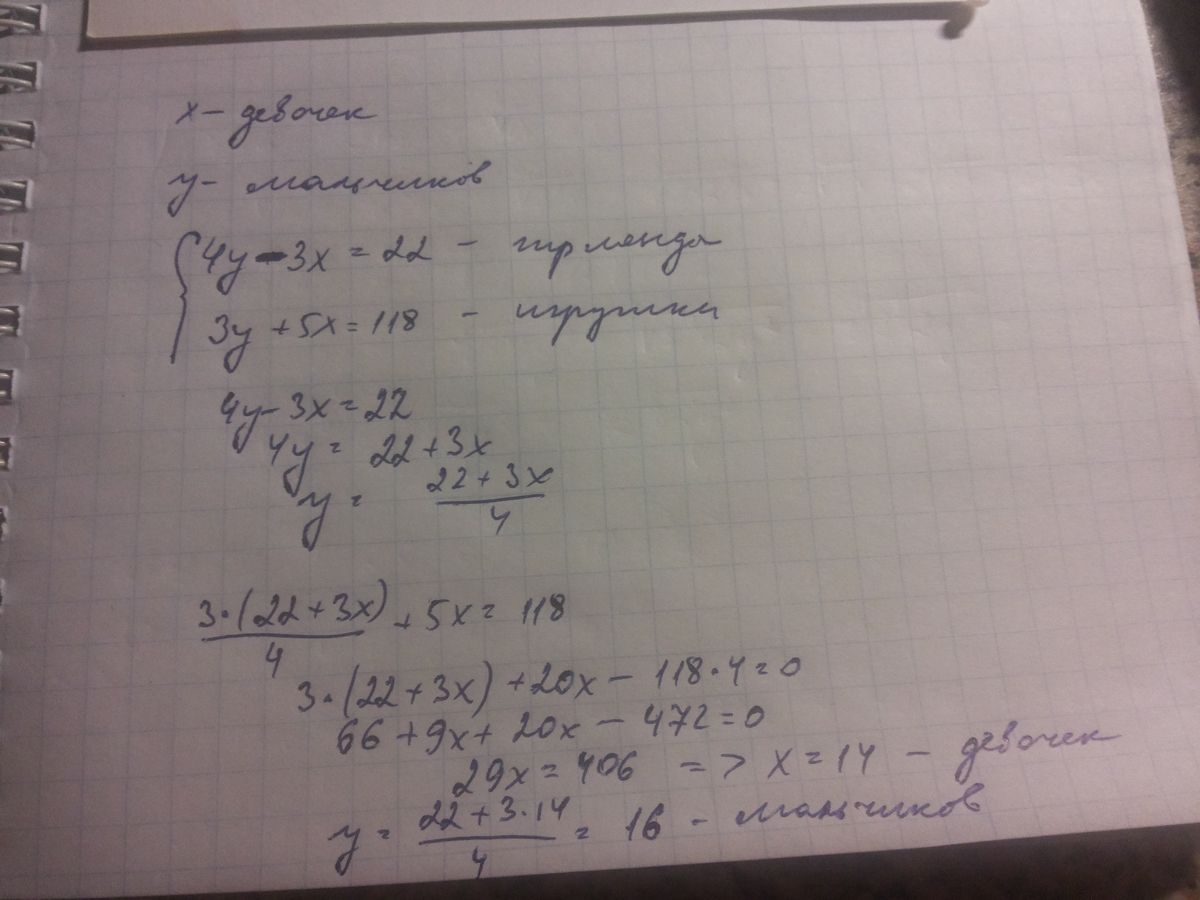 x - девочек
y - мальчиков
4y - 3x = 22 - гирлянда
3y + 5x = 118 - игрушки
4y - 3x = 22
4y = 22 + 3x
y = (22 + 3x)/4
3·(22 + 3x)/4 + 5x = 118
3·(22 + 3x) + 20x - 118·4 = 0
66 + 9x + 20x - 472 = 0
29x = 406 => x = 14 - девочек
y = (22 + 3·14)/4 = 16 - мальчиков